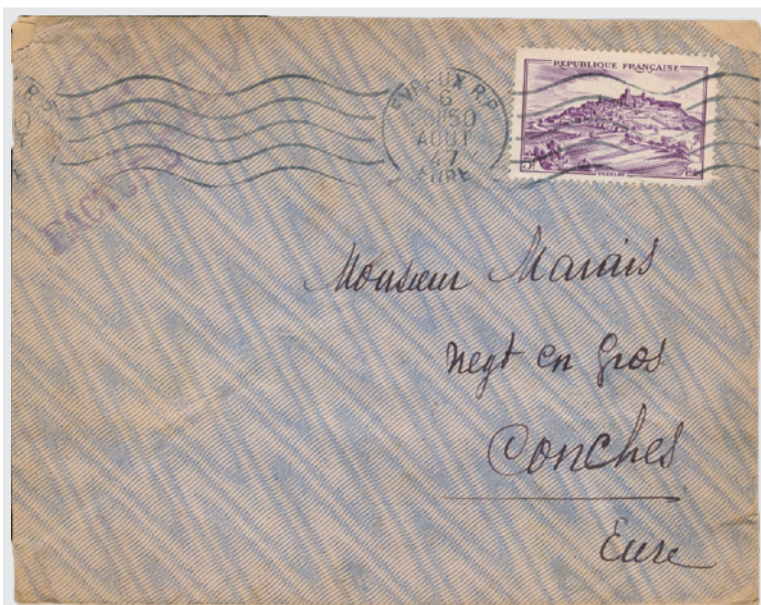 REPUBLIQUE FRANÇAISE
5F
VEZELAY
EVREUX R.P.
6
AOUT
47
EURE
FACTURE
Monsieur Marais
Negt en gros
Conches
Eure